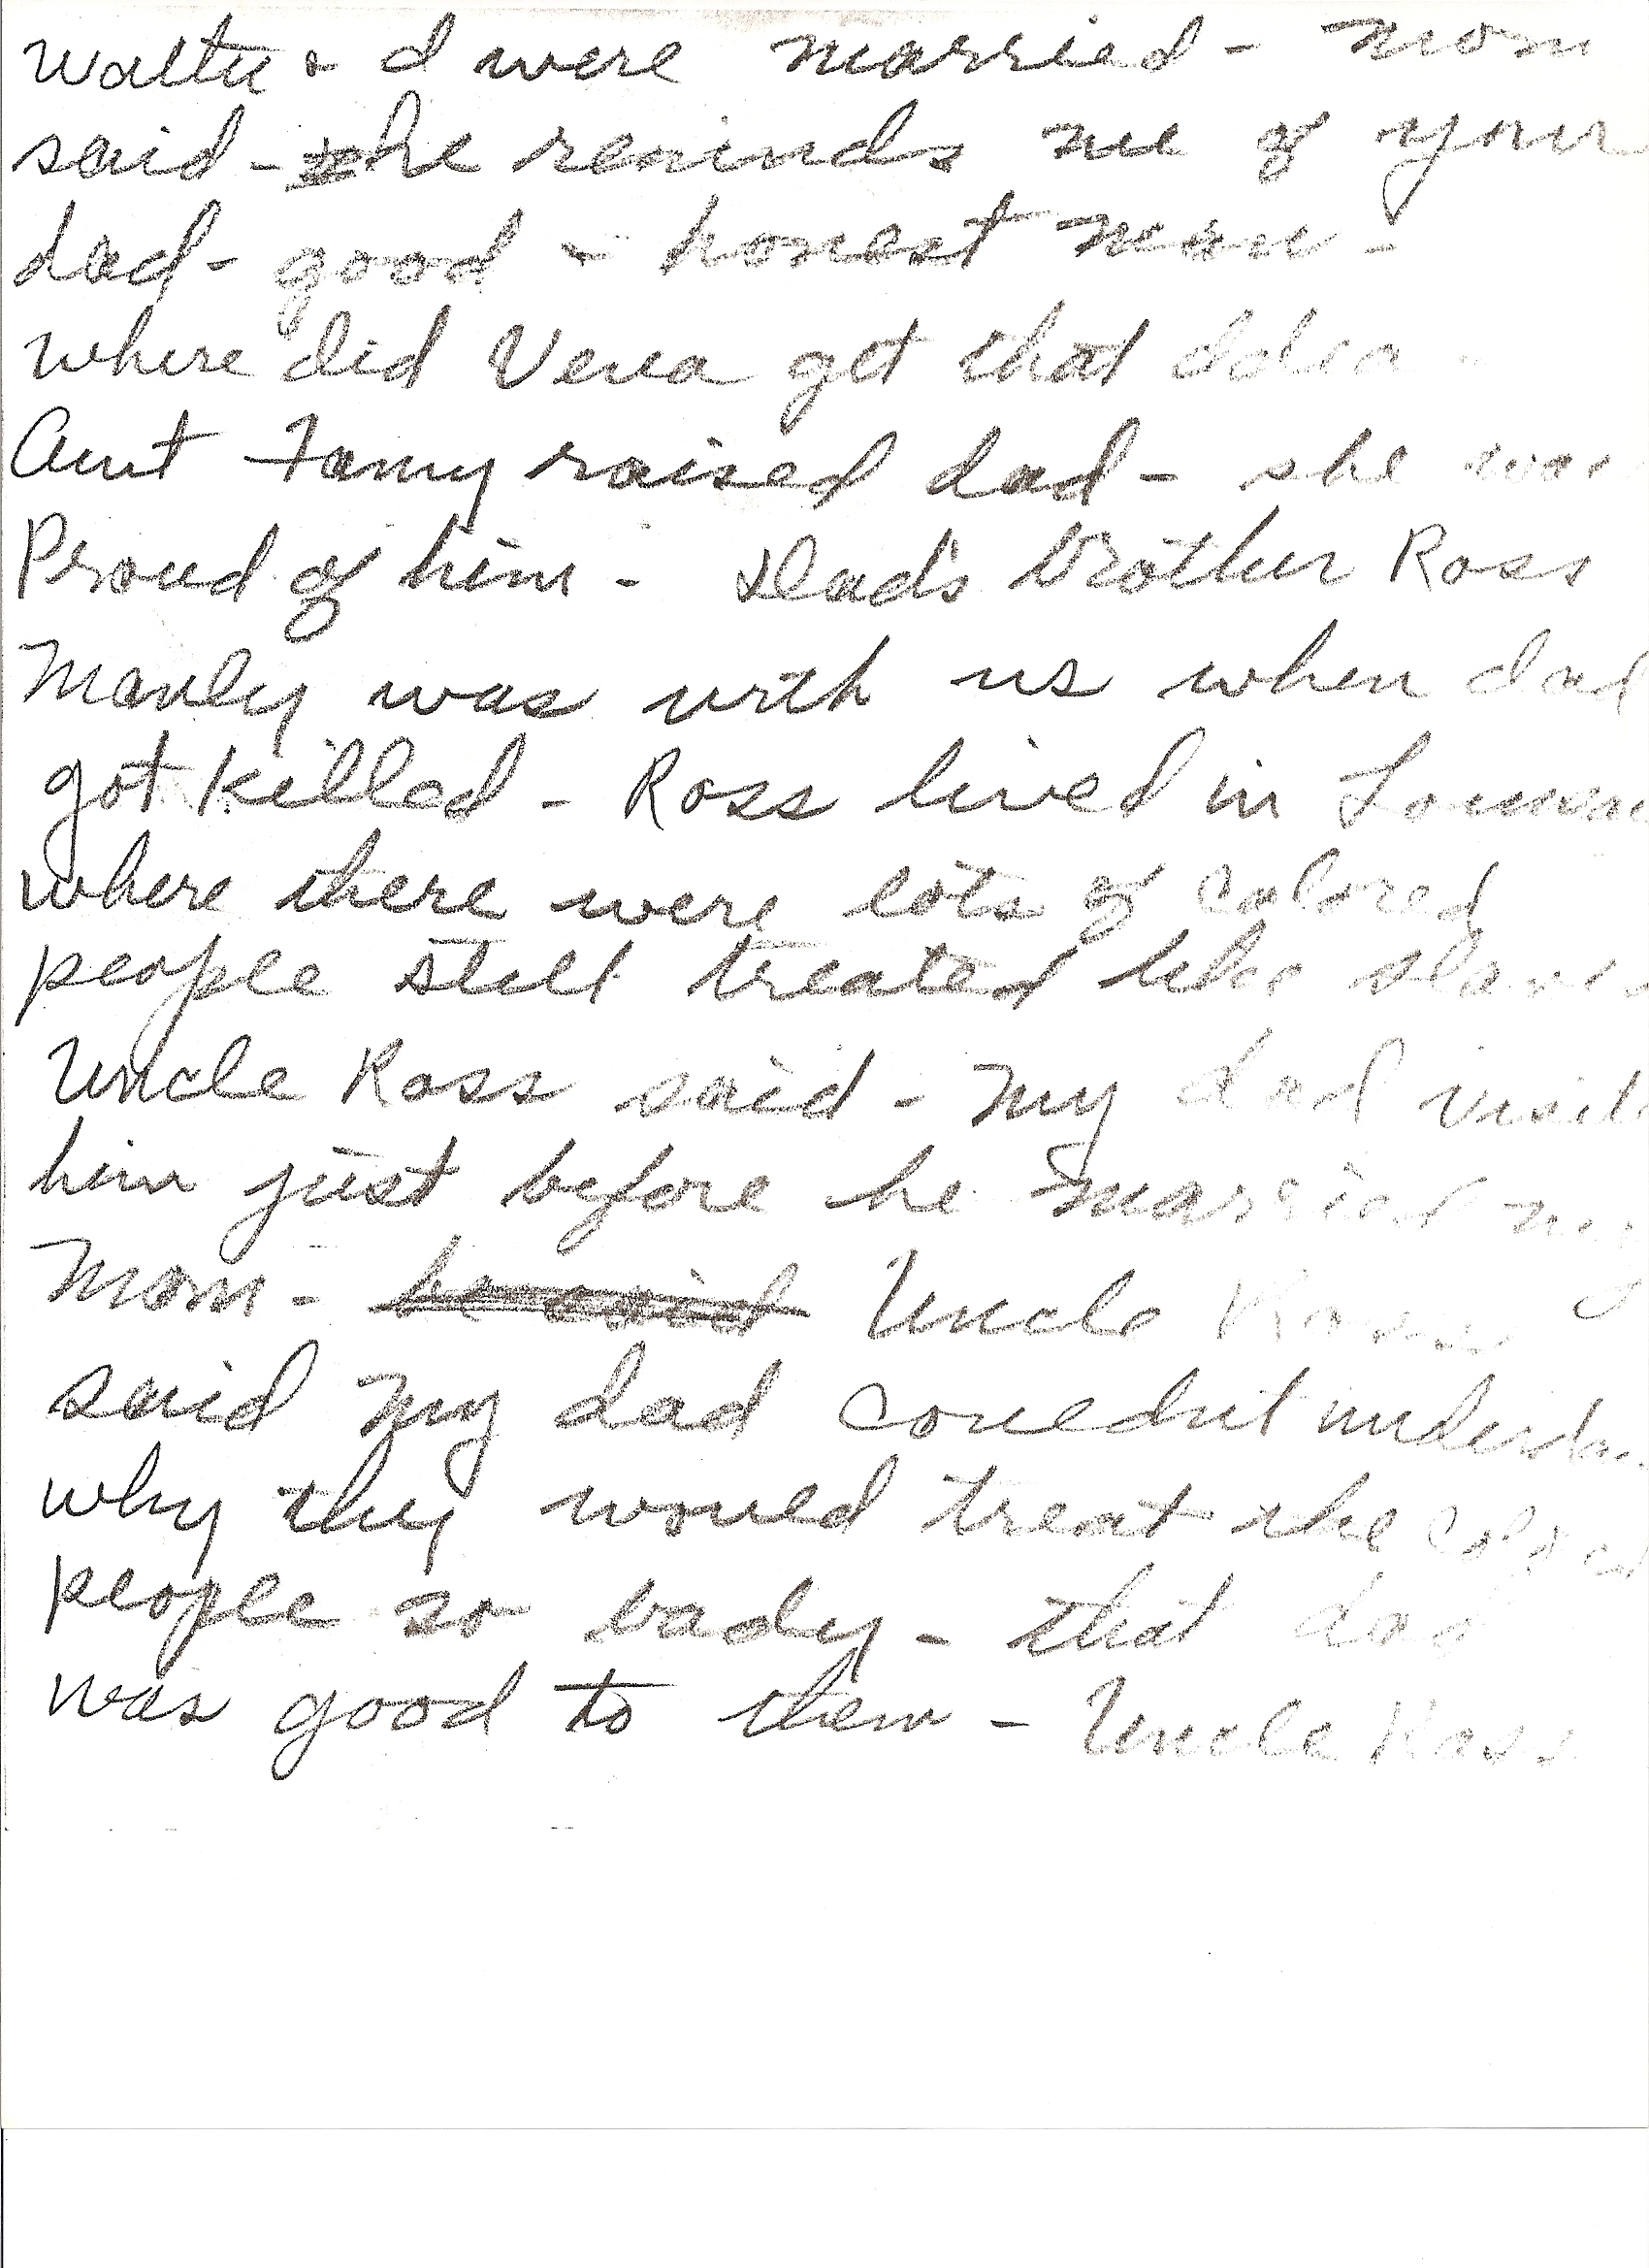 Walter & I were married - Mom
said - he reminds me of your
dad - good & honest man -
where did Vera get that idea -
Aunt Fanny raised dad - she was
Proud of him - Dad's brother Ross
Manly was with us when dad
got killed - Ross lived in
where there were lots of colored
people still treated like
Uncle Ross said - my dad
him just before he married my
Mom - he said Uncle Ross
said my dad couldn't
why they would treat the colored
people so bady - that dad
was good to them - Uncle Ross